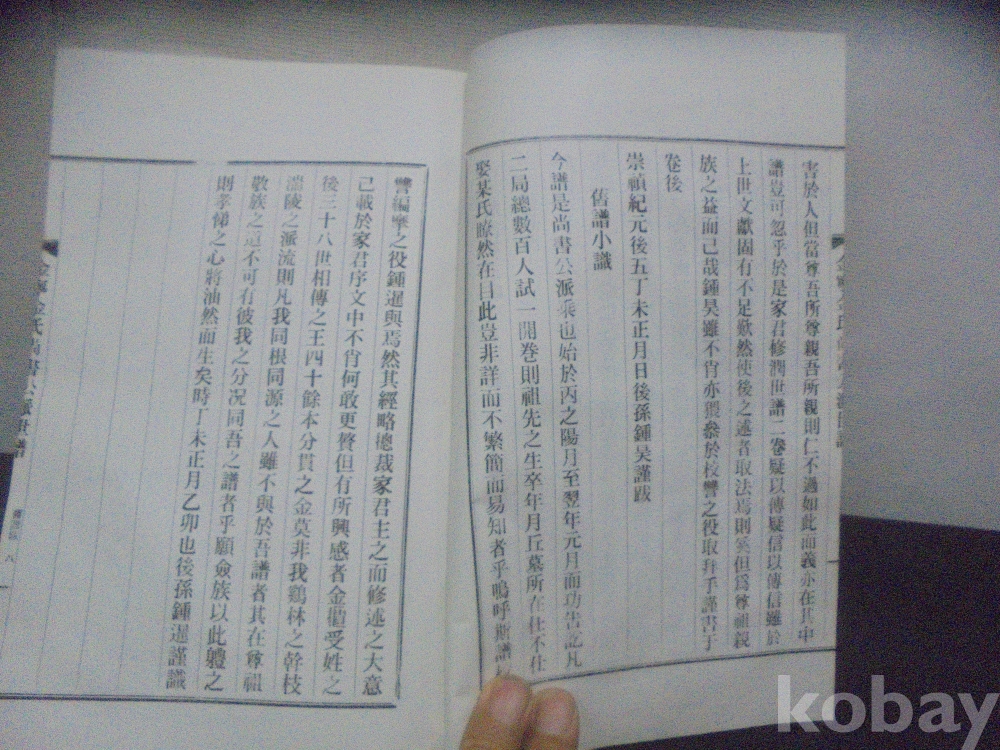 書於人但當尊吾所尊親吾所親則仁不過如此而義亦在其中
譜豈可忽乎於是家君修潤世譜二卷疑以傳疑信以傳信雖於
上世文獻固有不足歎然使後之述者取法焉則奚但爲尊祖親
族之益而已哉鍾昊雖不肖亦猥叅於校讐之役取拜手謹書于
卷後
崇禎紀元後五丁未正月日後孫鍾昊謹跋
舊譜小識
今譜是尚書公派乘也始於丙之陽月至翌年元月而功告訖凡
二局總數百人試一開卷則祖先之生卒年月丘墓所在仕不仕
娶某氏瞭然在目此豈非詳而不繁簡而易知者乎嗚呼斯譜
讐編摩之役鍾暹與焉然其經略摠裁家君主之而修述之大意
已載於家君序文中不肖何敢更贅但有所興感者金櫃受姓之
後三十八世相傳之王四十餘本分貫之金莫非我鷄林之幹枝
濡陵之派流則凡我同根同源之人雖不與於吾譜者其在尊祖
敬族之道不可有彼我之分况同吾之譜者乎願僉族以此軆之
則孝悌之心將油然而生矣時丁未正月乙卯也後孫鍾暹謹識
金氏尚書公派世譜
八
kobay